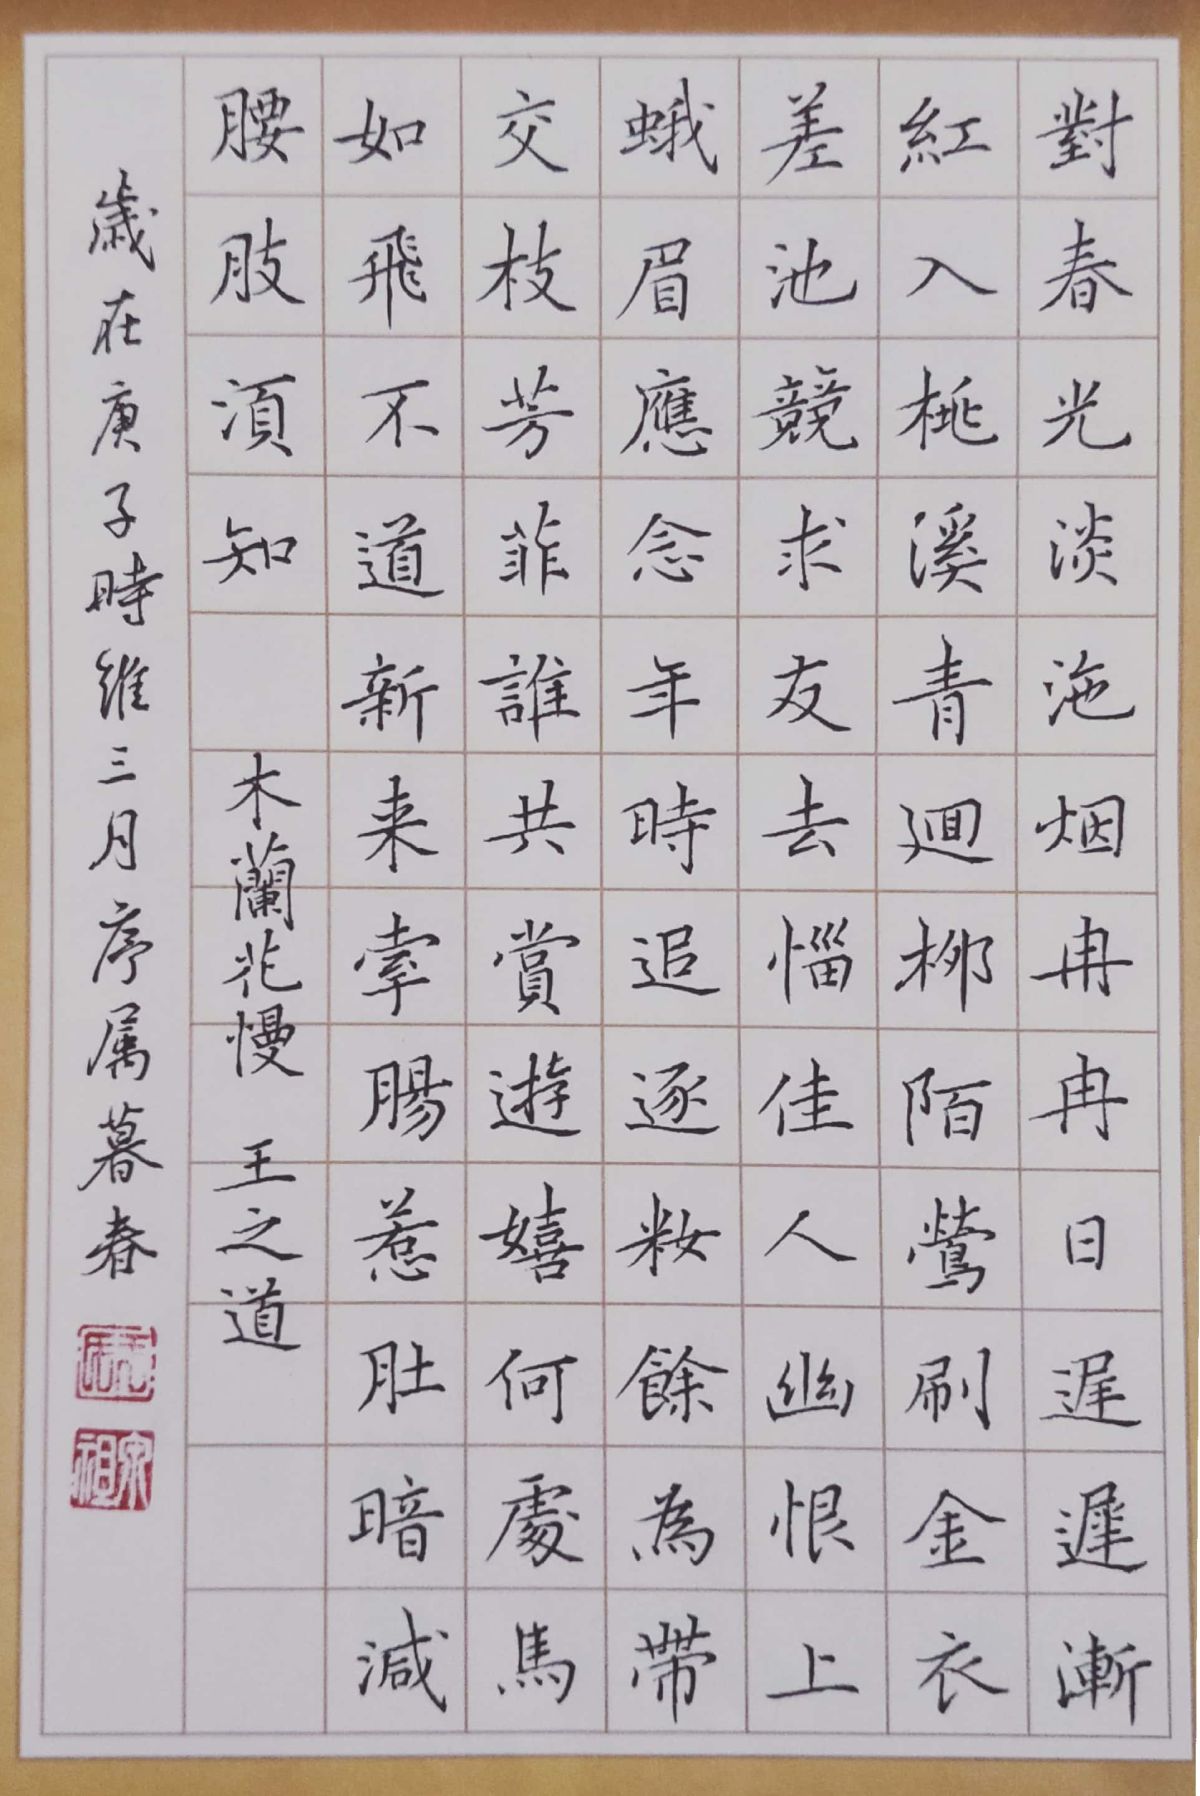 對春光淡沲烟冉冉日遲遲漸
紅入桃溪青迴柳陌鶯刷金衣
差池競求友去惱佳人幽恨上
蛾眉應念年時追逐妝餘為帶
交枝芳菲誰共賞遊嬉何處馬
如飛不道新来牽腸惹肚暗減
腰肢須知
木蘭花慢 王之道
歲在庚子時維三月序属暮春